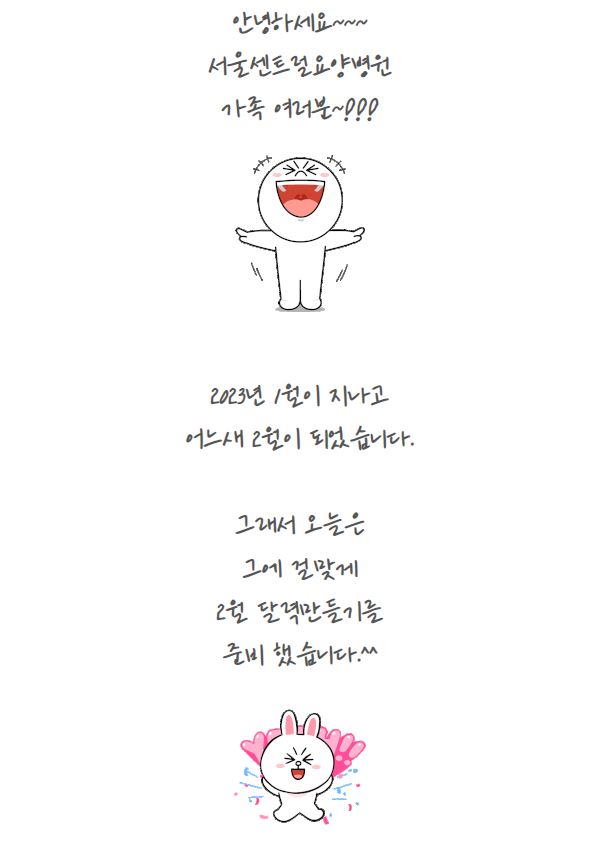 안녕하세요~~~
서울센트럴요양병원
가족 여러분~!!!
2023년 1월이 지나고
어느새 2월이 되었습니다.
그래서 오늘은
그에 걸맞게
2월 달력만들기를
준비 했습니다.^^